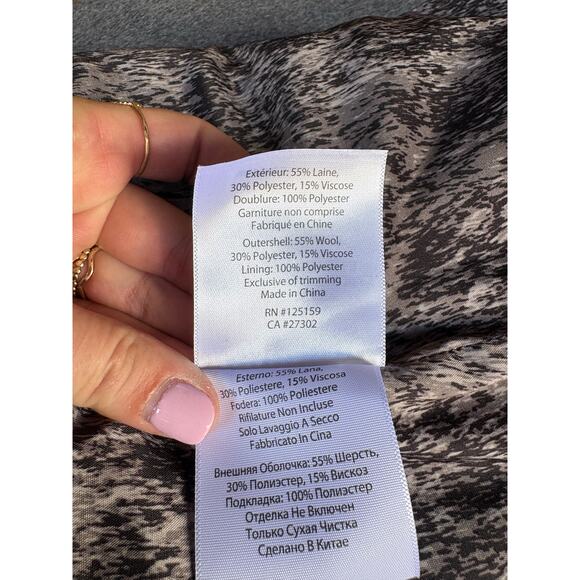 Extérieur: 55% Laine,
30% Polyester, 15% Viscose
Doublure: 100% Polyester
Garniture non comprise
Fabriqué en Chine
Outershell: 55% Wool,
30% Polyester, 15% Viscose
Lining: 100% Polyester
Exclusive of trimming
Made in China
RN #125159
CA #27302
Esterno: 55% Lana,
30% Poliestere, 15% Viscosa
Fodera: 100% Poliestere
Rifilature Non Incluse
Solo Lavaggio A Secco
Fabbricato In Cina
Внешняя Оболочка: 55% Шерсть,
30% Полиэстер, 15% Вискоз
Подкладка: 100% Полиэстер
Отделка Не Включен
Только Сухая Чистка
Сделано В Китае